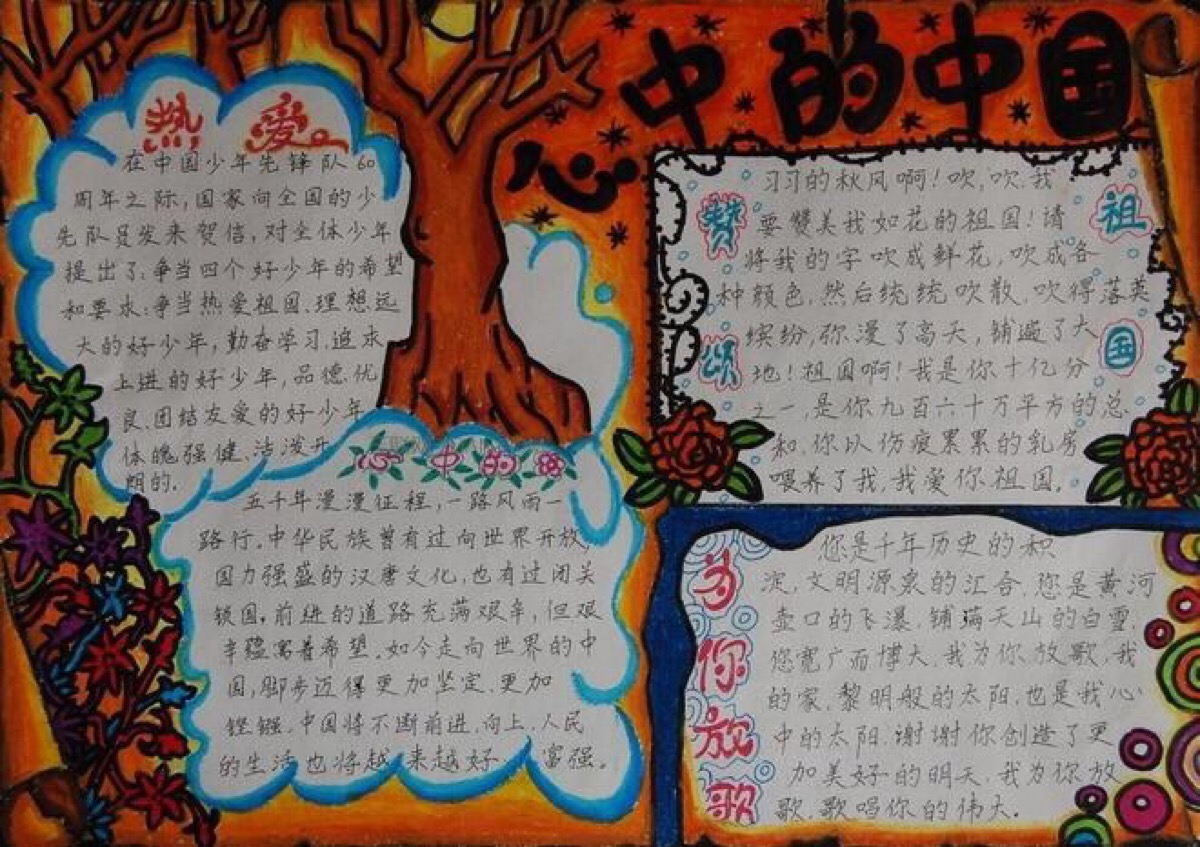 心中的中国
热爱
在中国少年先锋队60
周年之际,国家向全国的少
先队员发来贺信,对全体少年
提出了:争当四个好少年的希望
和要求:争当热爱祖国、理想远
大的好少年,勤奋学习、追求
上进的好少年,品德优
良、团结友爱的好少年
体魄强健、活泼开
朗的.
心中的
五千年漫漫征程,一路风雨一
路行。中华民族曾有过向世界开放,
国力强盛的汉唐文化,也有过闭关
锁国。前进的道路充满艰辛,但艰
辛蕴寓着希望。如今走向世界的中
国,脚步迈得更加坚定、更加
铿锵。中国将不断前进、向上,人民
的生活也将越来越好、富强。
赞颂祖国
习习的秋风啊!吹,吹,我
要赞美我如花的祖国!请
将我的字吹成鲜花,吹成各
种颜色,然后统统吹散、吹得落英
缤纷,弥漫了高天,铺遍了大
地!祖国啊!我是你十亿分
之一,是你九百六十万平方的总
和、你以伤痕累累的乳房
喂养了我,我爱你祖国。
为你放歌
您是千年历史的积
淀,文明源泉的汇合、您是黄河
壶口的飞瀑、铺满天山的白雪、
您宽广而博大、我为你放歌、我
的家、黎明般的太阳、也是我心
中的太阳、谢谢你创造了更
加美好的明天、我为你放
歌、歌唱你的伟大。